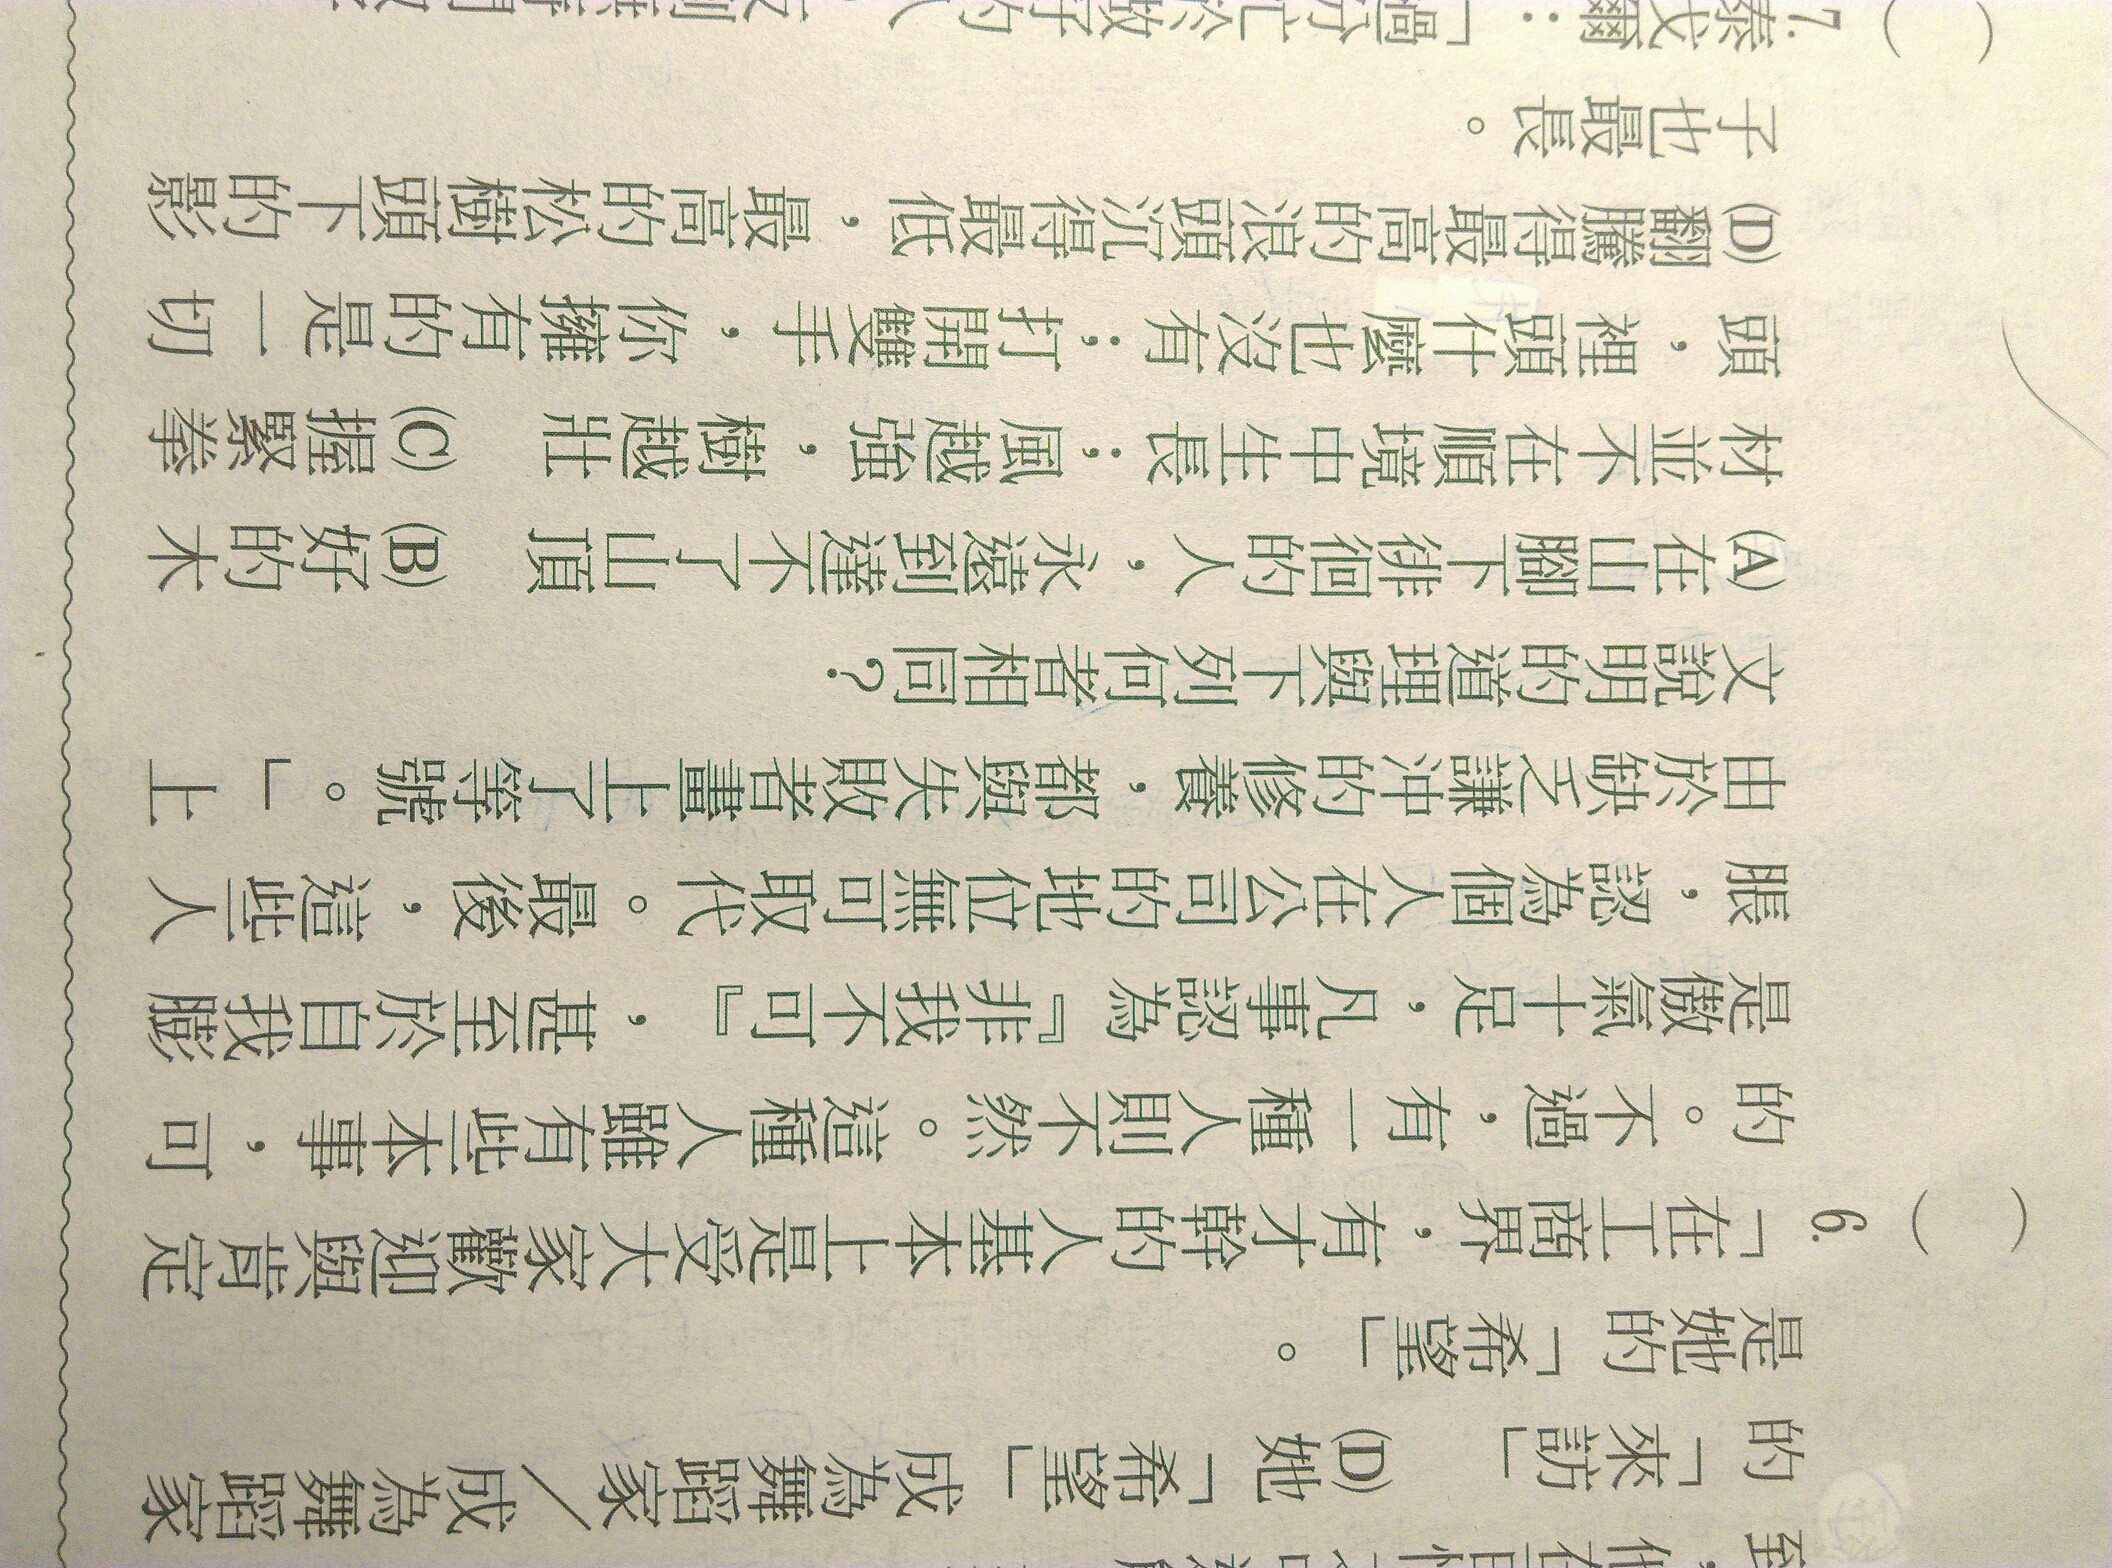 的「來訪」　(D)她「希望」成為舞蹈家／成為舞蹈家
是她的「希望」。
(　　) 6.「在工商界，有才幹的人基本上是受大家歡迎與肯定
的。不過，有一種人則不然。這種人雖有些本事，可
是傲氣十足，凡事認為『非我不可』，甚至於自我膨
脹，認為個人在公司的地位無可取代。最後，這些人
由於缺乏謙沖的修養，都與失敗者畫上了等號。」上
文說明的道理與下列何者相同？
(A)在山腳下徘徊的人，永遠到達不了山頂　(B)好的木
材並不在順境中生長；風越強，樹越壯　(C)握緊拳
頭，裡頭什麼也沒有；打開雙手，你擁有的是一切
(D)翻騰得最高的浪頭沉得最低，最高的松樹頭下的影
子也最長。
(　　) 7.泰戈爾：「過分忙於做好的人，反倒無